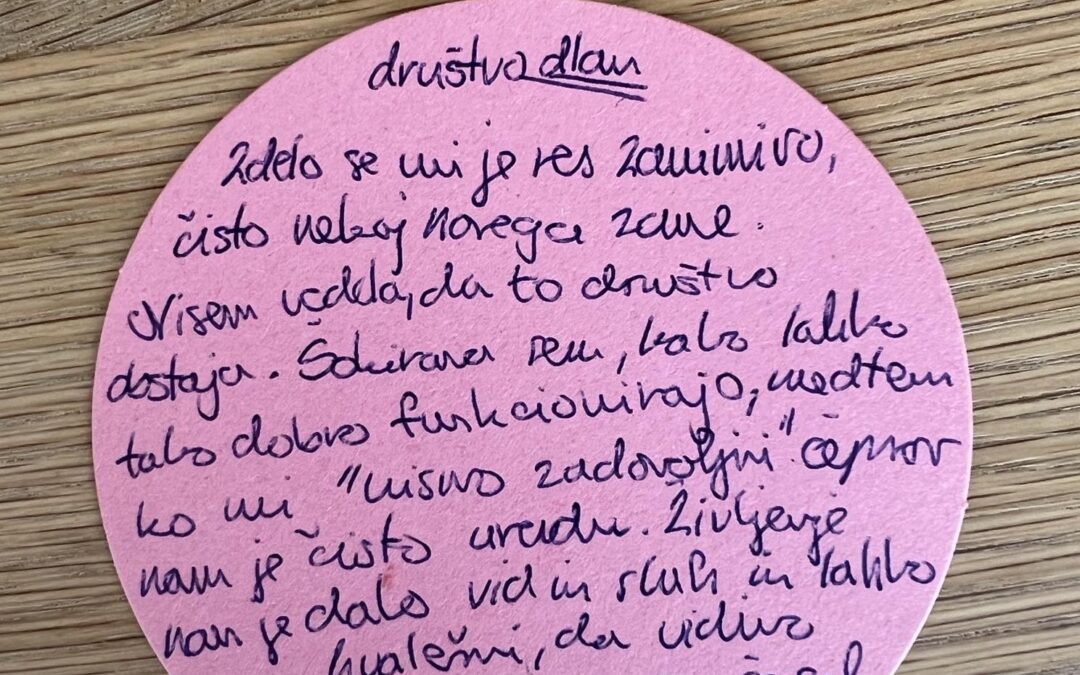 društvo dlan
Zdelo se mi je res zanimivo,
čisto nekaj novega zame.
Nisem vedela, da to društvo
dostaja. Šokirana sem, kako lahko
tako dobro funkcionirajo, medtem
ko mi "nismo zadovoljni" čeprav
nam je čisto vredu. Življenje
nam je dalo vid in sluh in lahko
hvaležni, da vidimo